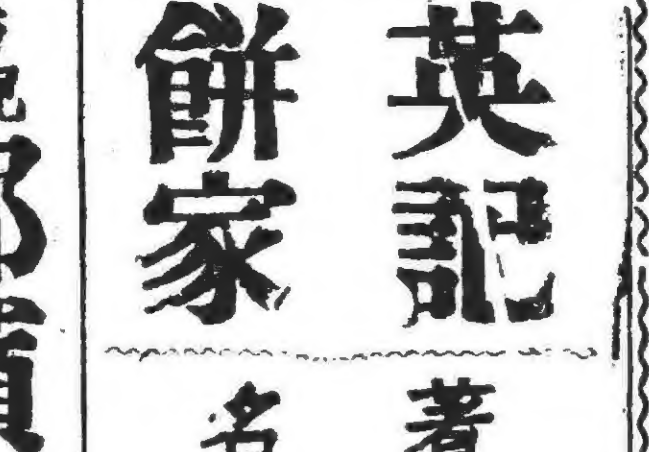 英記
餅家
著
名